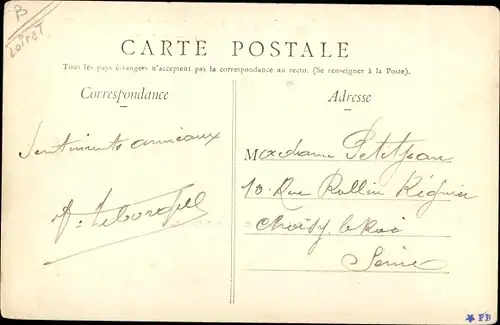 B
Loiret
CARTE POSTALE
Tous les pays étrangers n'acceptent pas la correspondance au recto. (Se renseigner à la Poste).
Correspondance
Adresse
Sentiments amicaux
Madame Petitjean
10 Rue Rollin Régnier
Choisy le Roi
Seine
★ PB